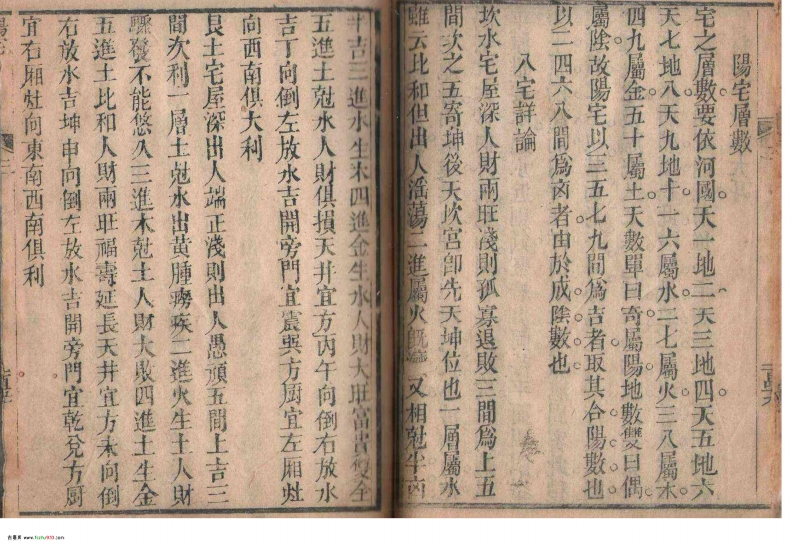 陽宅層數
宅之層數要依河圖天一地二天三地四天五地六
天七地八天九地十一六屬水二七屬火三八屬木
四九屬金五十屬土天數單曰奇屬陽地數雙曰偶
屬陰故陽宅以三五七九間為吉者取其合陽數也
以二四六八間為凶者由於成陰數也
八宅詳論
坎水宅屋深人財兩旺淺則孤寡退敗三間為上五
間次之五寄坤後天坎宮卽先天坤位也一層屬水
雖云比和但出人淫蕩二進屬火既 又相尅半凶
半吉三進水生木四進金生水人財大旺富貴雙全
五進土尅水人財俱損天井宜方丙午向倒右放水
吉丁向倒左放水吉開旁門宜震巽方厨宜左廂灶
向西南俱大利
艮土宅屋深出人端正淺則出人愚頑五間上吉三
間次利一層土尅水出黃腫 疾二進火生土人財
驟發不能悠久三進木尅土人財大敗四進土生金
五進土比和人財兩旺福壽延長天井宜方未向倒
右放水吉坤申向倒左放水吉開旁門宜乾兌方厨
宜右廂灶向東南西南俱利